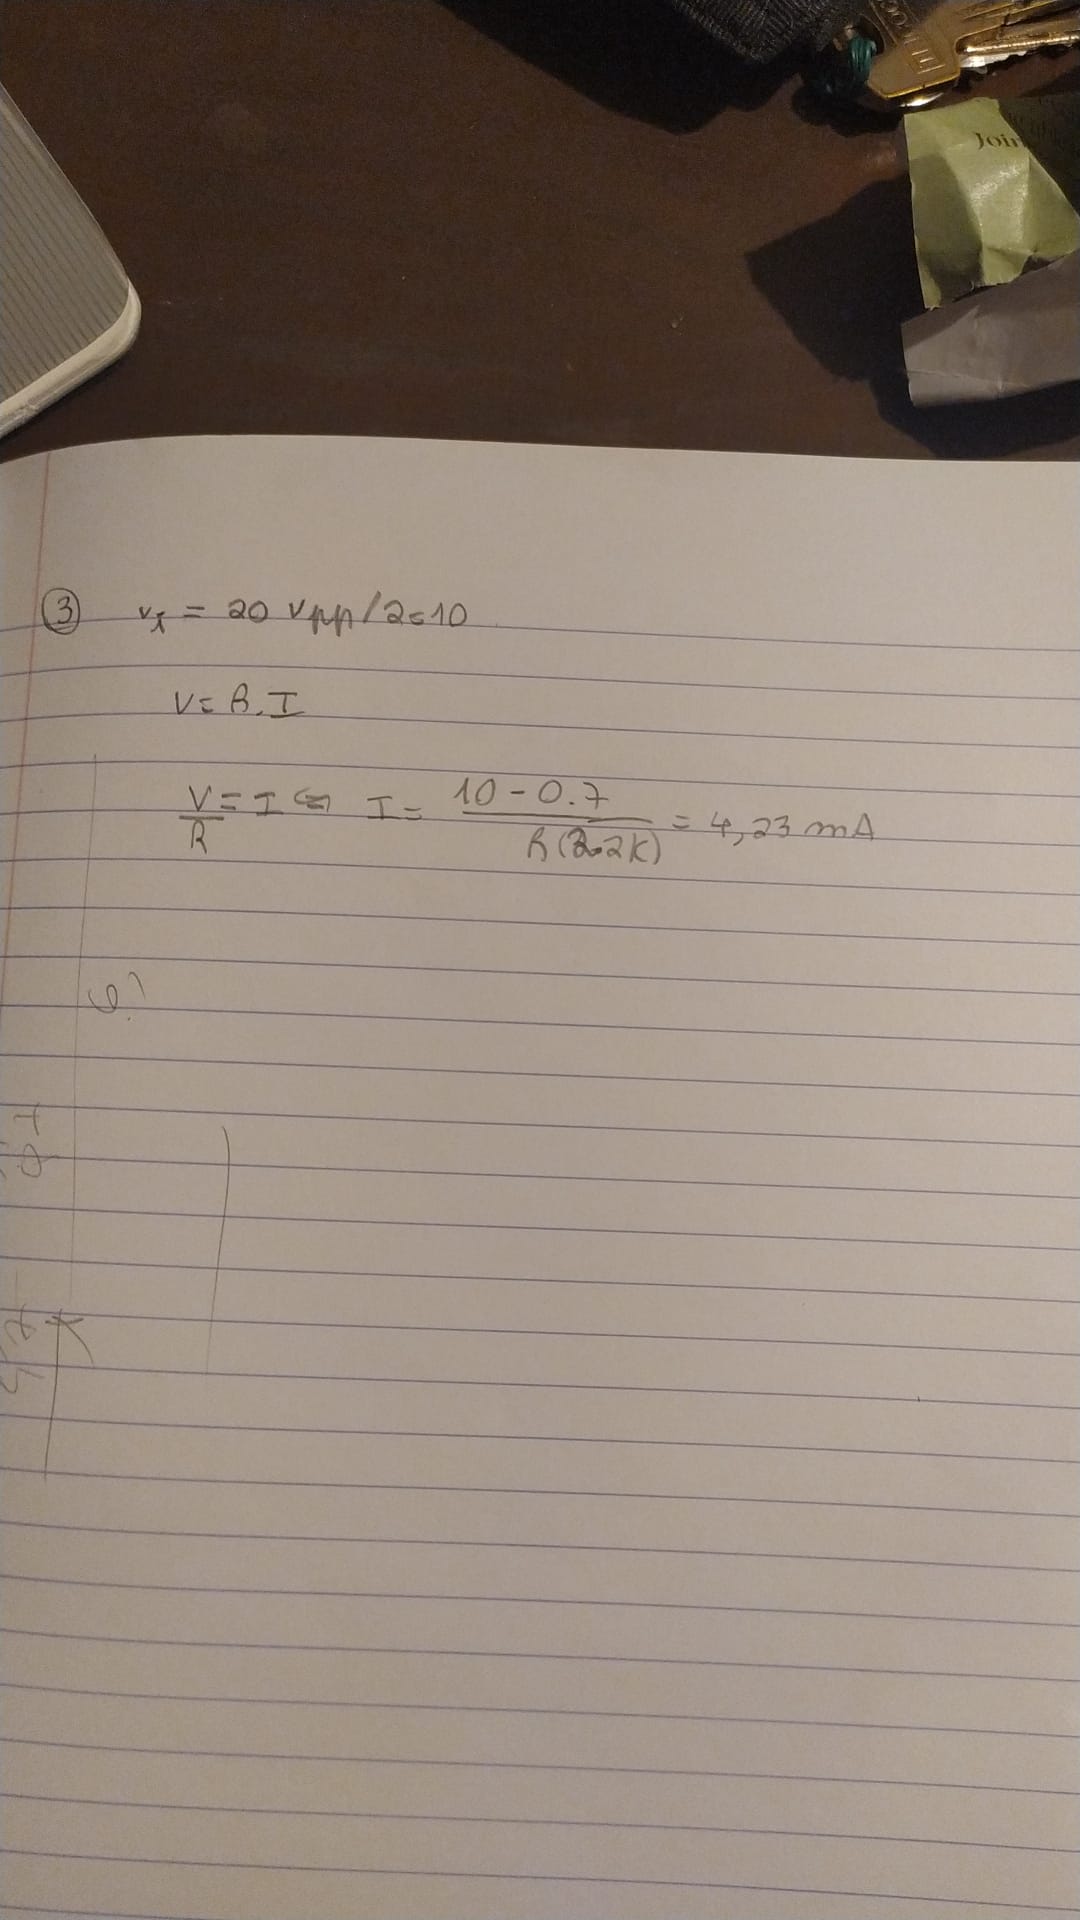 Join
③ vi = 20 Vpp/2=10
V= R.I
V/R = I ⇔ I = 10-0.7 / R(2.2K) = 4,23 mA